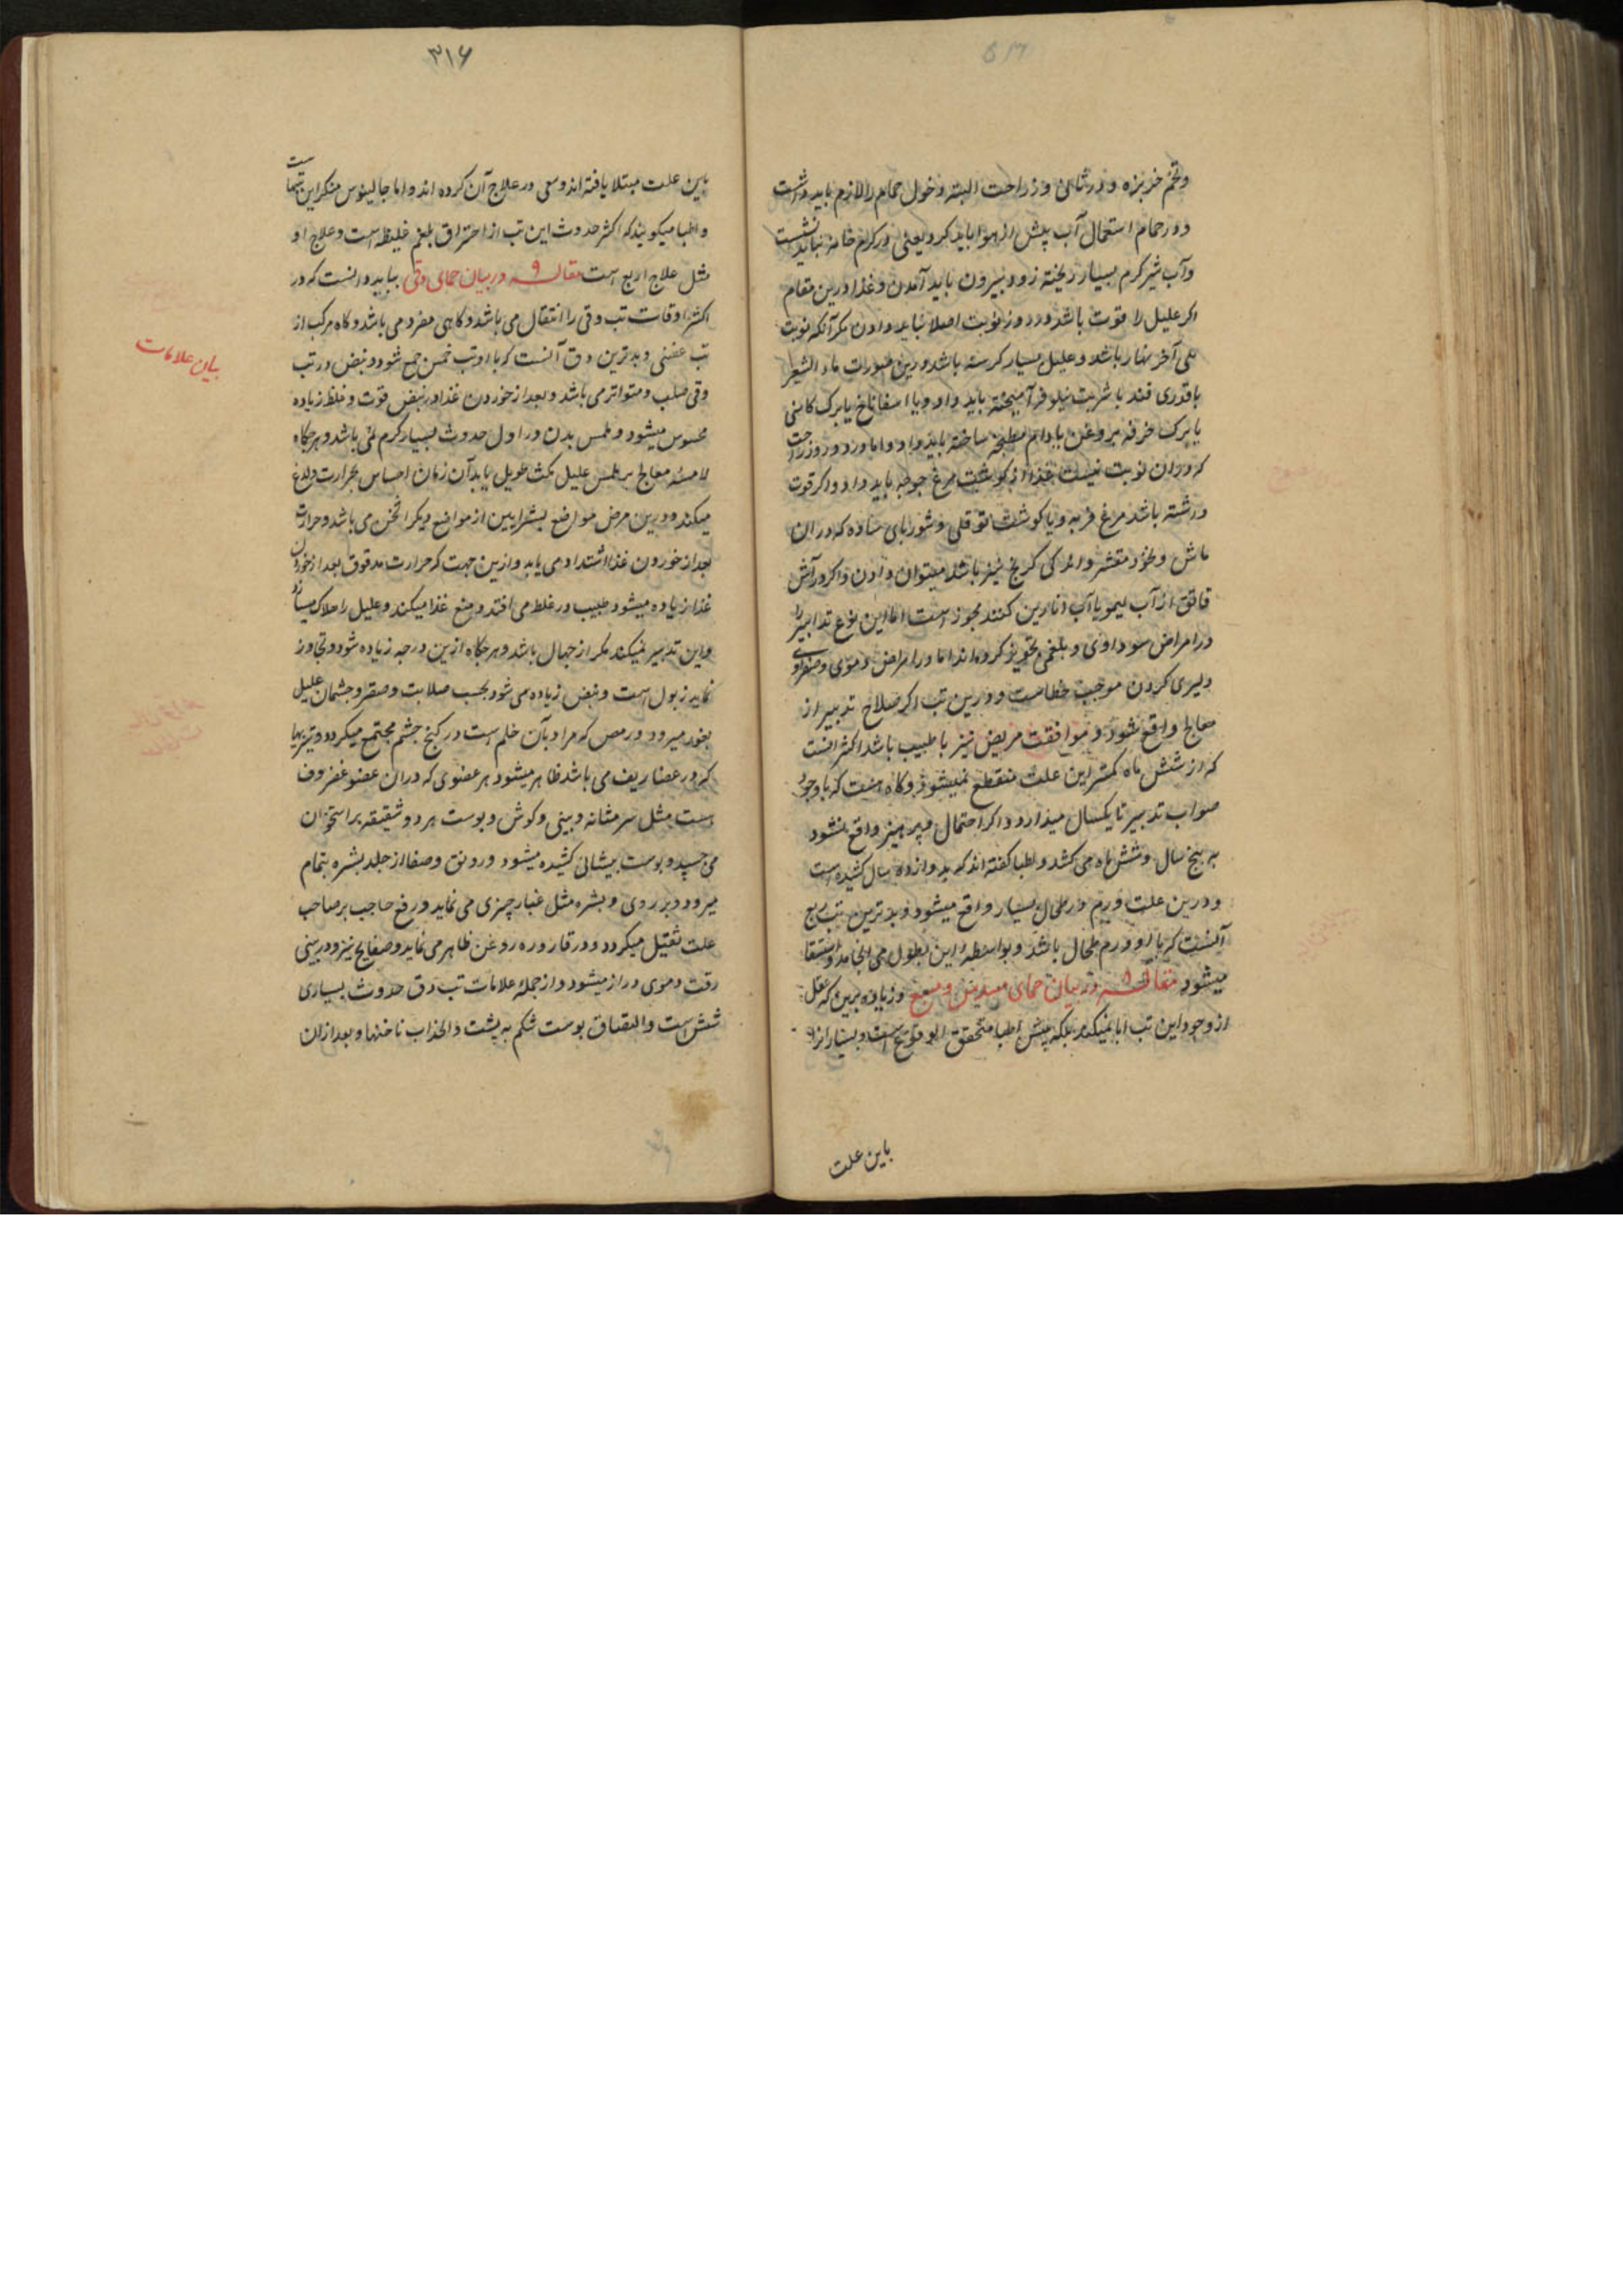 وتخم خربزه و در شان وزراحت البته دخول حمام را لازم باید داشت
و در حمام استعمال آب پیش از هوا باید کرد یعنی در کرم خانه نباید نشست
وآب شیر کرم بسیار ریخته زود بیرون باید آمدن و غذا درین مقام
اکر علیل را قوت باشد در روز نوبت اصلا نباید دادن مکر آنکه نوبت
علی آخر نهار باشد و علیل بسیار کرسنه باشد درین صورات ماء الشعیر
باقدری قند با شربت نیلوفر آمیخته باید داد و یا اسفاناخ یا برک کاسنی
یا برک خرفه بروغن بادام مطنجه ساخته باید داد و اما در دو روز راحت
که دران نوبت نیست غذا از کوشت مرغ جوجه باید داد و اکر قوت
داشته باشد مرغ فربه و یا کوشت تو قلی و شوربای ساده که دران
ماش ونخود مقشر و اندکی کرنج نیز باشد میتوان دادن و اکر در آش
قاتق از آب لیمو یا آب انارین کنند مجوز است اما این نوع تدابیر را
در امراض سوداوی و بلغمی تجویز کرده اند اما در امراض دموی و صفراوی
دلیری کردن موجب خطاست و درین تب اکر صلاح تدبیر از
معالج واقع شود و موافقت مریض نیز با طبیب باشد اکثر انست
که از شش ماه کمتر این علت منقطع نمیشود و کاه هست که با وجود
صواب تدبیر تا یکسال میدارد و اکر احتمال و پرهیز واقع نشود
به پنج سال وشش ماه می کشد و اطبا کفته اند که بد وازده سال کشیده است
و درین علت ورم در طحال بسیار واقع میشود و بدترین تب ربع
آنست که با او ورم طحال باشد و بواسطهٔ این بطول می انجامد و استسقا
میشود مقاله ۸ در بیان حمای مسدس و مسبع و زیاده برین که عقل
از وجود این تب ابا نمیکند بلکه پیش اطبا متحقق الوقوع است و بسیار انرا
باین علت
۳۱۶
باین علت مبتلا یافته اند وسعی در علاج آن کرده اند واما جالینوس منکر این تبهاست
و اطبا میکویند که اکثر حدوث این تب از احتراق بلغم غلیظه است وعلاج او
مثل علاج اربع است مقاله ۹ در بیان حمای دقی بباید دانست که در
اکثر اوقات تب دقی را انتقال می باشد و کاهی مفرد می باشد و کاه مرکب از
تب عفنی و بدترین دق آنست که با او تب خمس جمع شود و نبض در تب
دقی صلب و متواتر می باشد و بعد از خوردن غذا در نبض قوت و غلظ زیاده
محسوس میشود و ملمس بدن در اول حدوث بسیار کرم نمی باشد و هرکاه
لامسهٔ معالج بر ملمس علیل مکث طویل یابد آن زمان احساس بحرارت و لذع
میکند و درین مرض مواضع بشرایین از مواضع دیکر اسخن می باشد و حرارت
بعد از خوردن غذا اشتداد می یابد و ازین جهت که حرارت مدقوق بعد از خوردن
غذا زیاده میشود طبیب در غلط می افتد و منع غذا میکند و علیل را هلاک میسازد
و این تدبیر نمیکند مکر از جهال باشد و هرکاه ازین درجه زیاده شود و تجاوز
نماید زبول است و نبض زیاده می شود بحسب صلابت و صقر و چشمان علیل
بغور میرود و رمص که مراد بآن خلم است در کنج جشم مجتمع میکردد و تیزیها
که در غضاریف می باشد ظاهر میشود هر عضوی که دران عضو غضروف
است مثل سر مثانه و بینی و کوش و بوست هر دو شقیقه بر استخوان
می چسبد و بوست بیشانی کشیده میشود و رونق و صفا از جلد بشره بتمام
میرود و بر روی و بشره مثل غبار چیزی می نماید و رفع حاجب بر صاحب
علت ثقیل میکردد و در قاروره روغن ظاهر می نماید و صفایح نیز و در بینی
رقت و موی دراز میشود و از جملهٔ علامات تب دق حدوث بسیاری
شش است و التصاق بوست شکم به پشت و انحذاب ناخنها و بعد ازان
بیان علامات